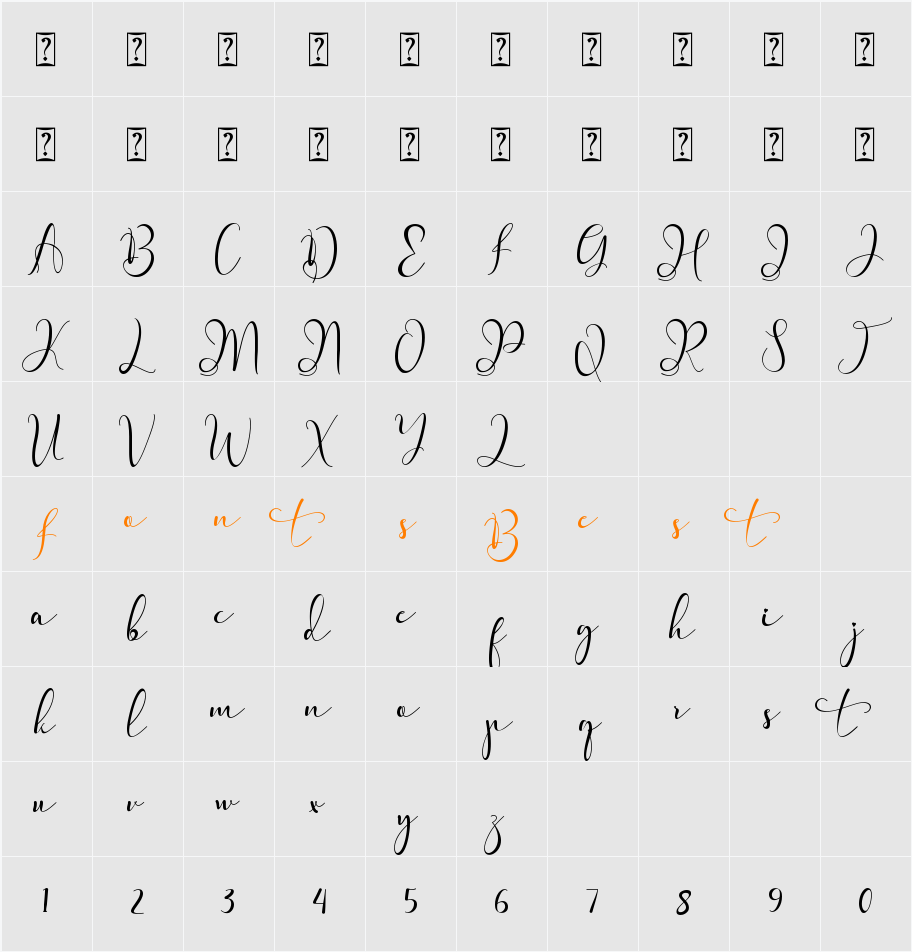 A B C D E F G H I J
K L M N O P Q R S T
U V W X Y Z
f o n t s B e s t
a b c d e f g h i j
k l m n o p q r s t
u v w x y z
1 2 3 4 5 6 7 8 9 0